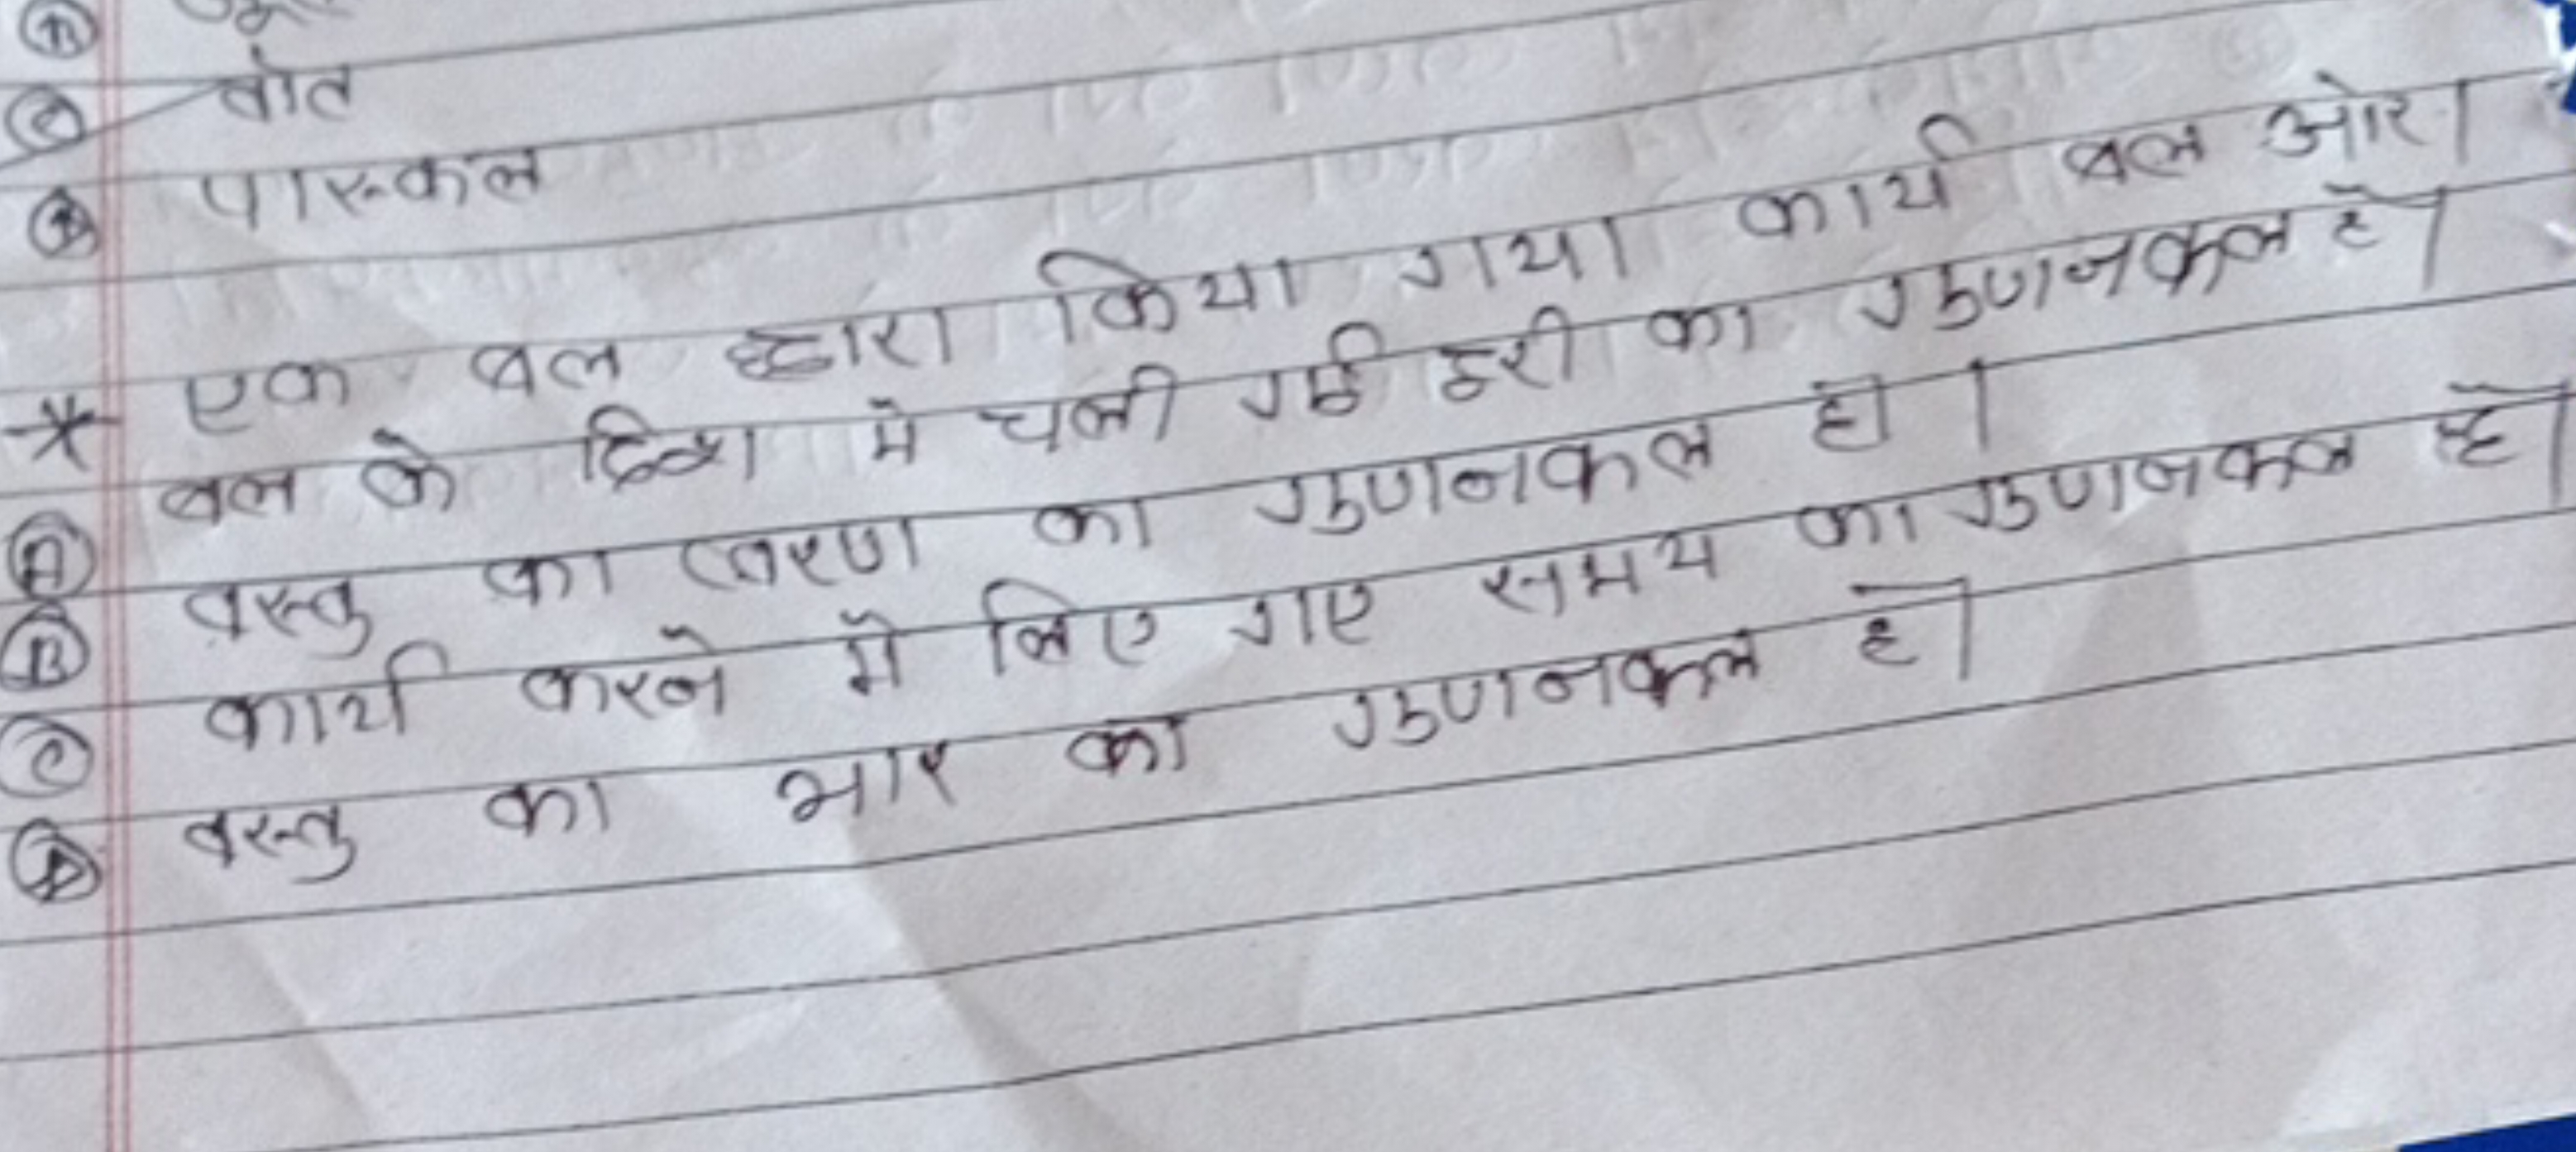 Ⓒ वोत
Ⓓ पास्कल
* एक बल द्वारा किया गया कार्य बल ओर।
Ⓐ बल के दिशा मे चली गई दुरी का गुणनफल है।
Ⓑ वस्तु का त्वरण का गुणनफल है।
Ⓒ कार्य करने मे लिए गए समय का गुणनफल है।
Ⓓ वस्तु का भार का गुणनफल है।